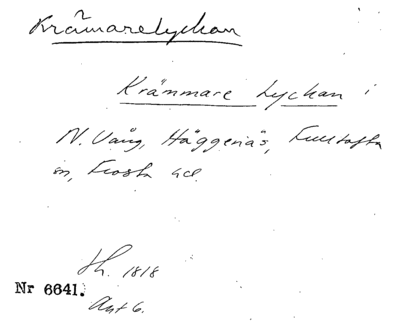 Krämarelyckan
Krämmare Lyckan i
N. Vång, Häggenäs, Fulltofta
sn, Frosta hd.
Sh. 1818
Nr 6641.
Akt 6.